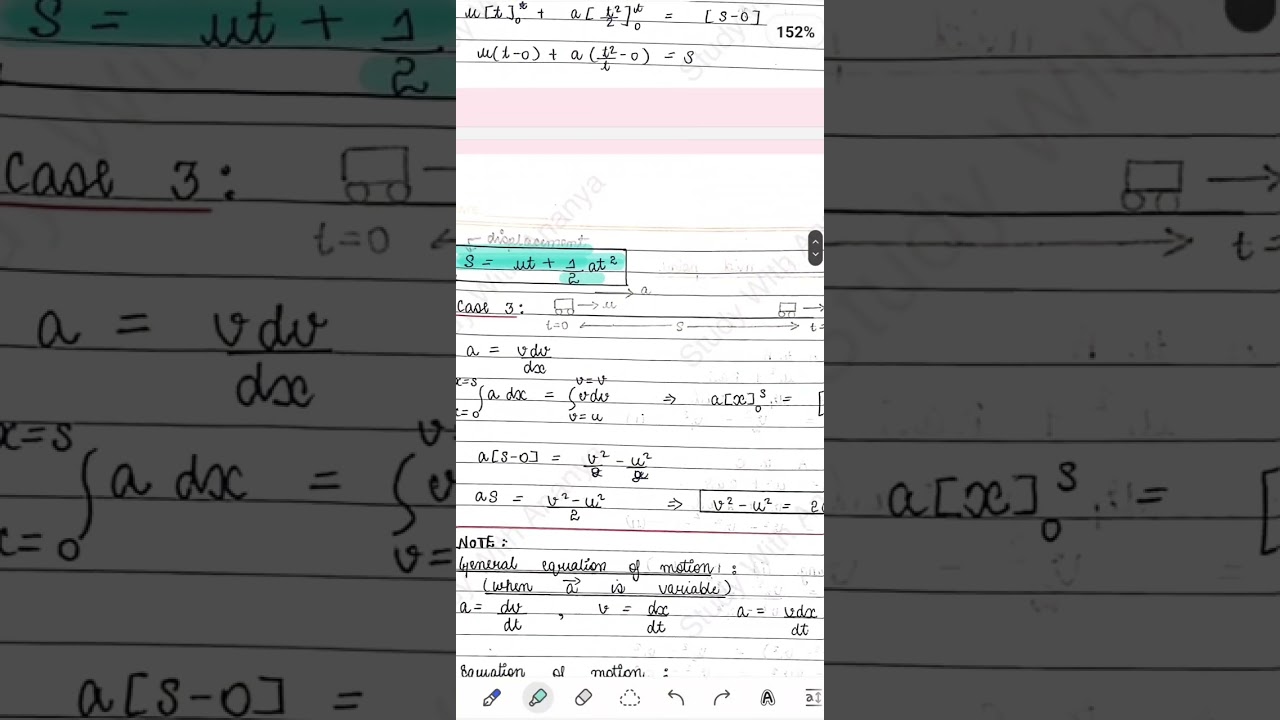 u[t]₀ᵗ + a[t²/2]₀ᵗ = [S-0]
152%
u(t-0) + a(t²/t - 0) = S
displacement
S = ut + 1/2 at²
a
Case 3: u
t=0 S t=
a = vdv/dx
x=S v=v
∫ a dx = ∫ vdv ⇒ a[x]₀ˢ = [
x=0 v=u
a[S-0] = v²/2 - u²/2
aS = v²-u²/2 ⇒ v²-u² = 2a
NOTE:
General equation of motion:
(when a⃗ is variable)
a = dv/dt, v = dx/dt a = vdx/dt
Equation of motion:
Study With Ananya